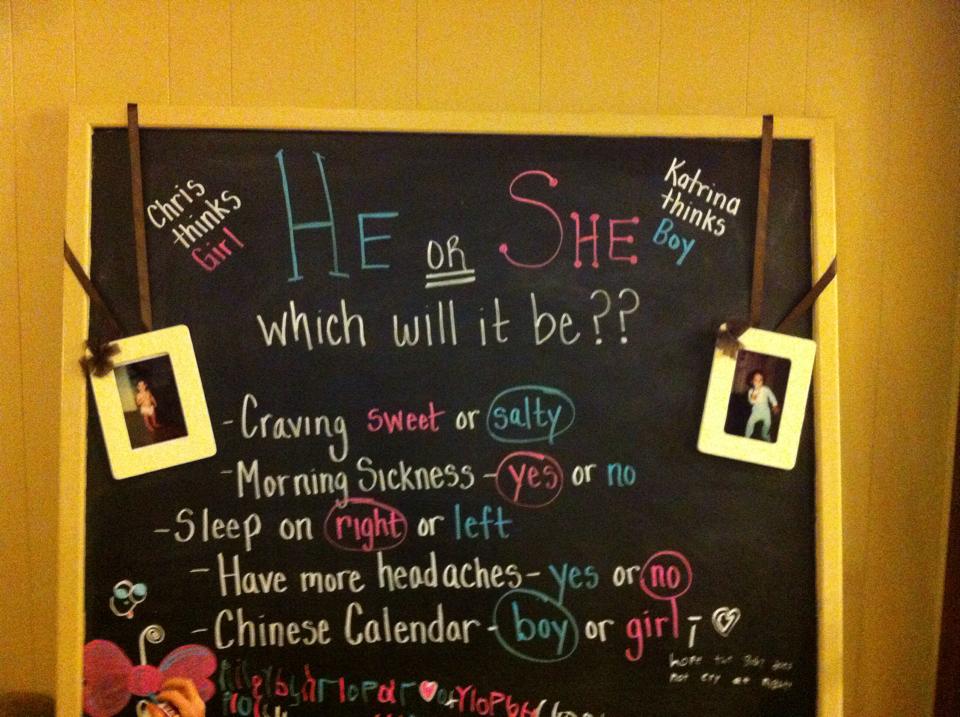 Chris
thinks
Girl
HE OR SHE
Katrina
thinks
Boy
which will it be??
-Craving sweet or salty
-Morning Sickness - yes or no
-Sleep on right or left
-Have more headaches- yes or no
-Chinese Calendar - boy or girl
hope the
not cry at night